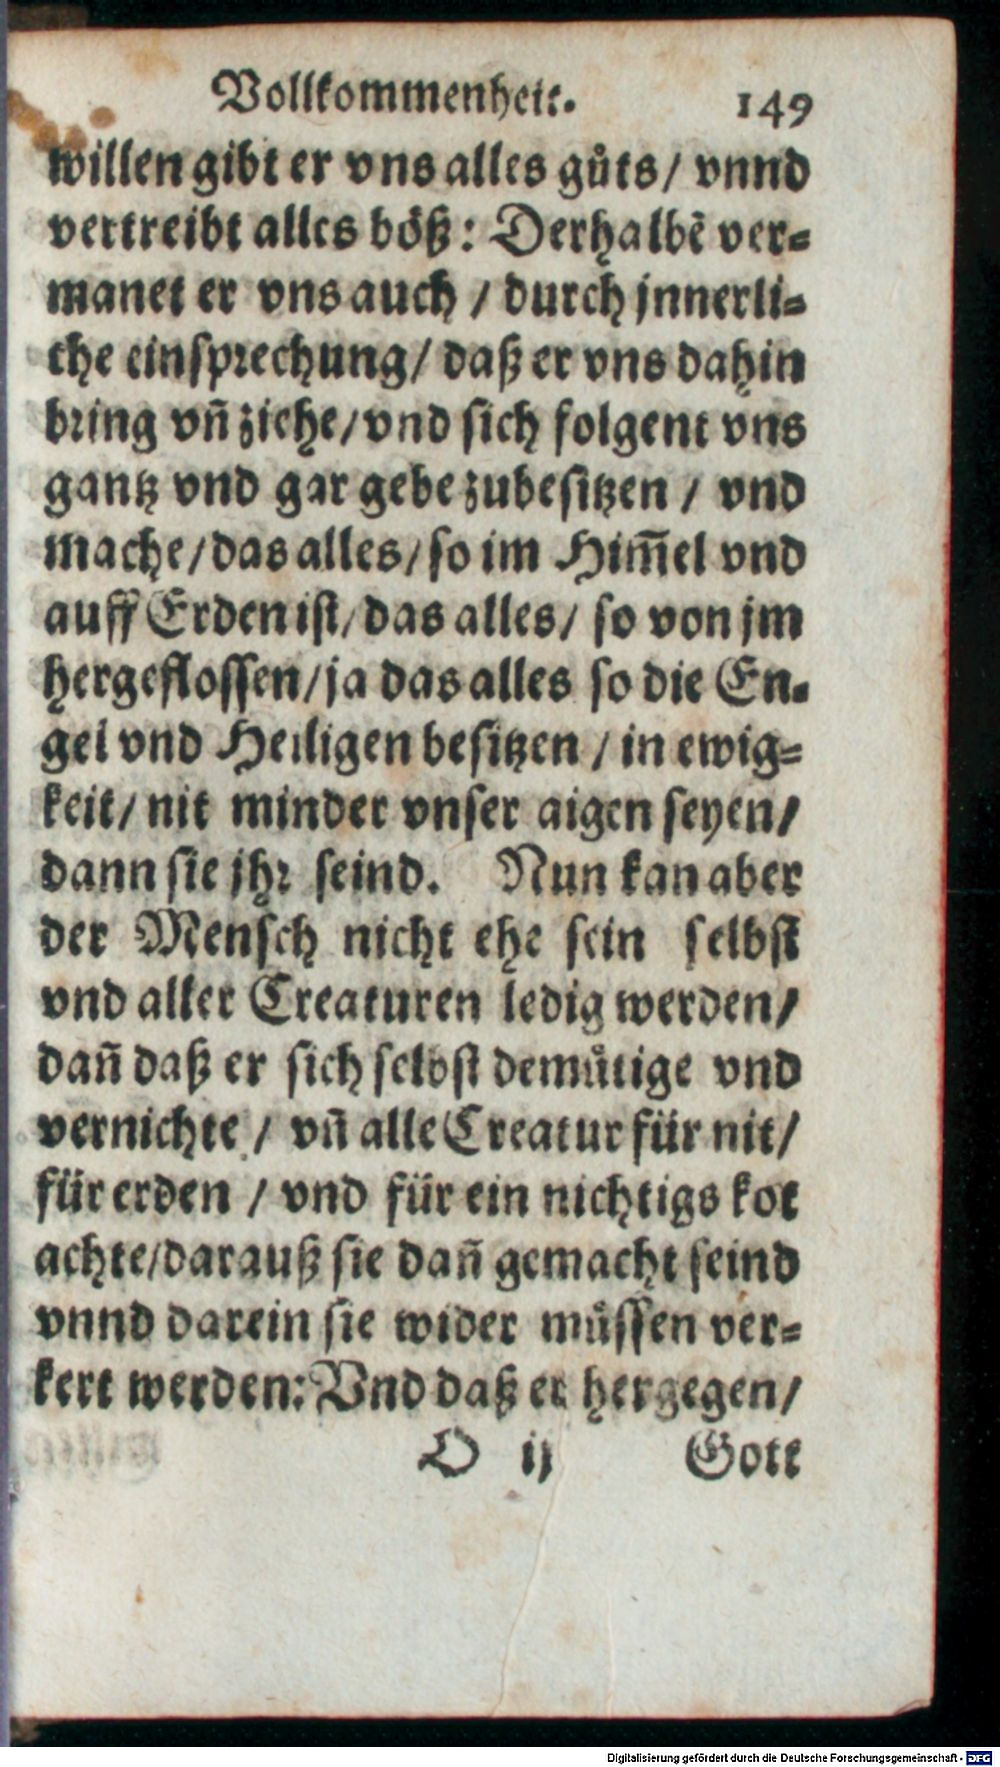 Vollkommenheit. 149
willen gibt er vns alles guͦts / vnnd
vertreibt alles boͤß : Derhalbẽ ver=
manet er vns auch / durch jnnerli=
che einsprechung / daß er vns dahin
bring vñ ziehe / vnd sich folgent vns
gantz vnd gar gebe zubesitzen / vnd
mache / das alles / so im Him̃el vnd
auff Erden ist / das alles / so von jm
hergeflossen / ja das alles so die En=
gel vnd Heiligen besitzen / in ewig=
keit / nit minder vnser aigen seyen /
dann sie jhr seind. Nun kan aber
der Mensch nicht ehe sein selbst
vnd aller Creaturen ledig werden /
dañ daß er sich selbst demuͤtige vnd
vernichte / vñ alle Creatur für nit /
für erden / vnd für ein nichtigs kot
achte / darauß sie dañ gemacht seind
vnnd darein sie wider muͤssen ver=
kert werden: Vnd daß er hergegen /
O ij Gott
Digitalisierung gefördert durch die Deutsche Forschungsgemeinschaft - DFG